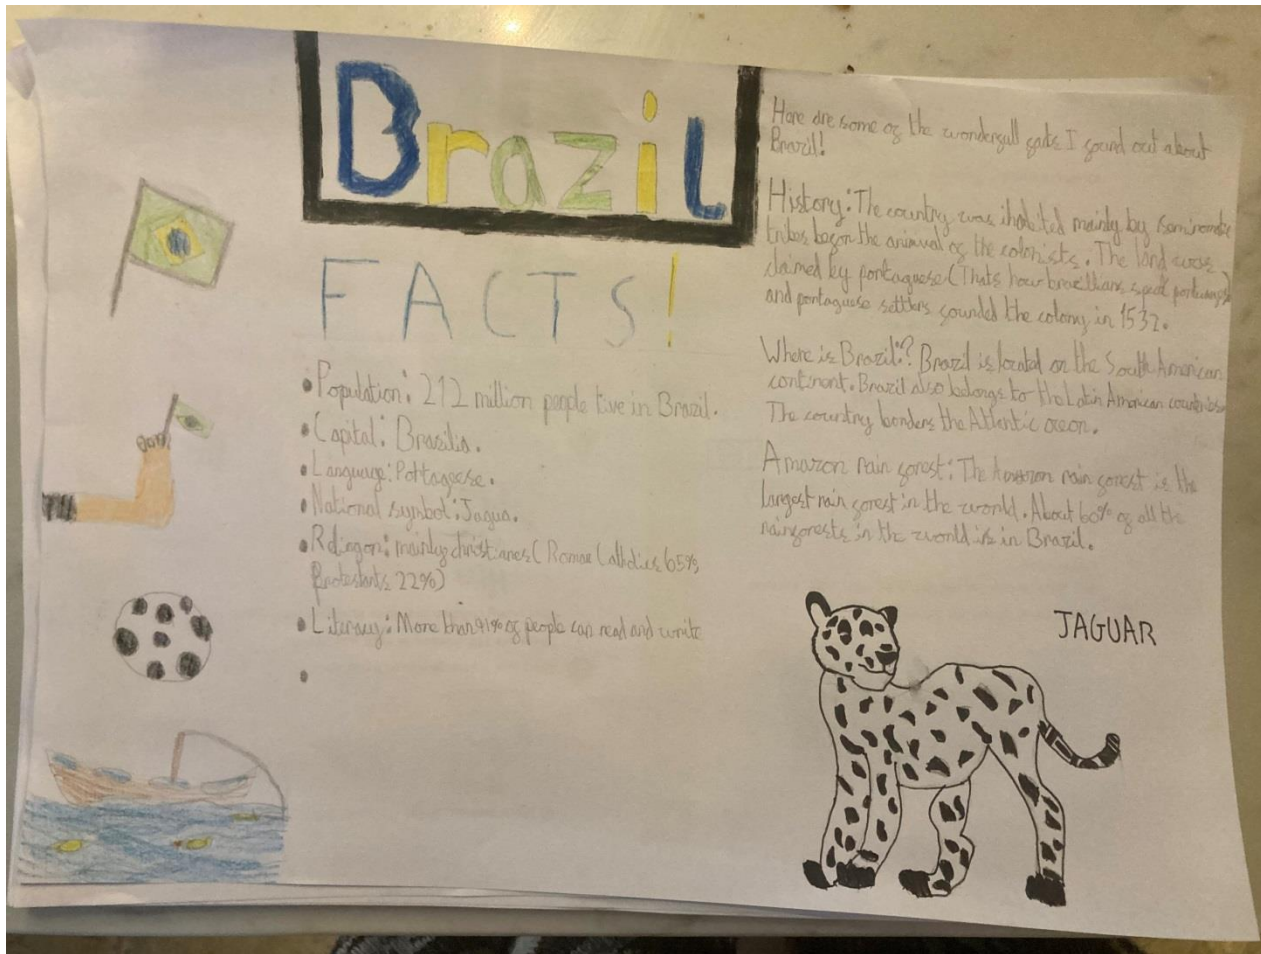 Brazil
FACTS!
• Population: 212 million people live in Brazil.
• Capital: Brasilia.
• Language: Portageese.
• National symbol: Jagua.
• Relingon: mainly christianes (Roman Catholics 65%,
Protestants 22%)
• Literacy: More than 91% of people can read and write
•
Here are some of the wonderfull facts I found out about
Brazil!
History: The country was ihabited mainly by
tribes the of the colonists. The land was
claimed by portaguese (Thats how brazillians speak
and portaguese settlers founded the colony in 1532.
Where is Brazil:? Brazil is located on the South American
continent. Brazil also belongs to the Latin American countries
The country borders the Atlantic ocean.
Amazon rain forest: The Amazon rain forest is the
largest rain forest in the world. About 60% of all the
rainforests in the world is in Brazil.
JAGUAR